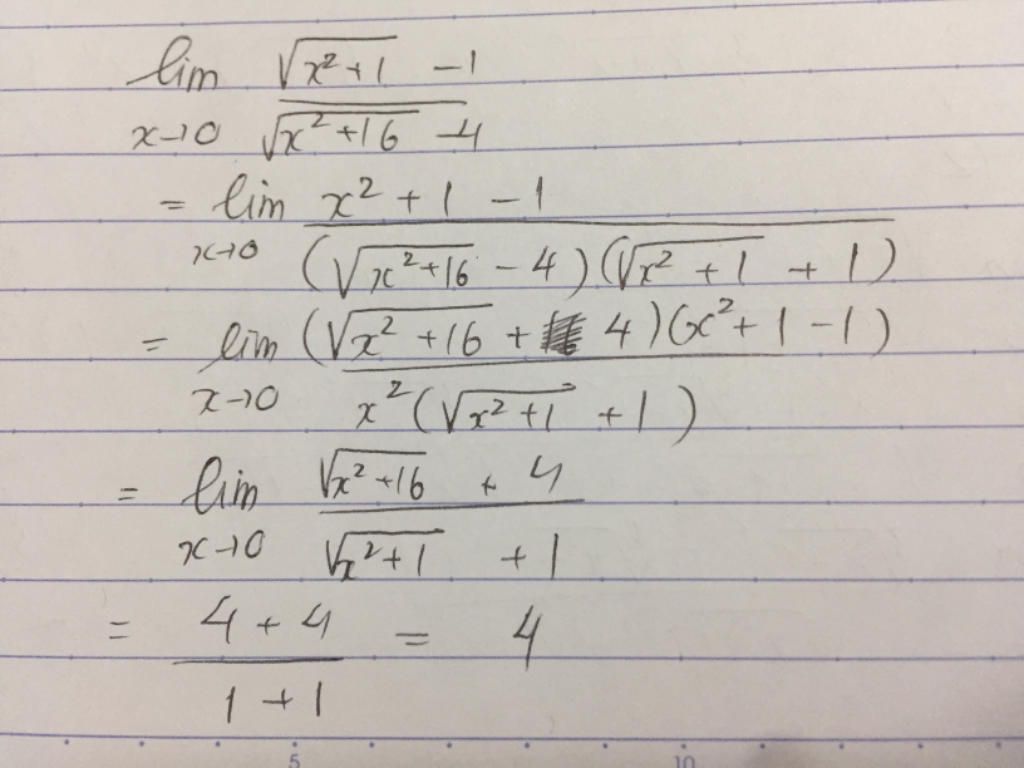 lim (√(x²+1) - 1)/(√(x²+16) - 4)
x→0
= lim (x² + 1 - 1)/((√(x²+16) - 4)(√(x²+1) + 1))
x→0
= lim ((√(x²+16) + 4)(x² + 1 - 1))/(x²(√(x²+1) + 1))
x→0
= lim (√(x²+16) + 4)/(√(x²+1) + 1)
x→0
= (4 + 4)/(1 + 1) = 4
5 10